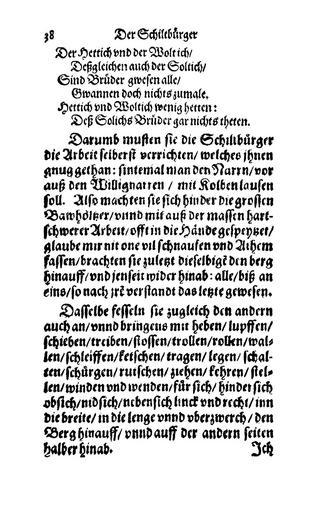 38 Der Schiltbürger
Der Hettich vnd der Woltich/
Deßgleichen auch der Soltich/
Sind Brüder gwesen alle/
Gwannen doch nichts zumale.
Hettich vnd Woltich wenig hetten:
Deß Solichs Brüder gar nichts theten.
Darumb musten sie die Schiltbürger
die Arbeit selberst verrichten/ welches jhnen
gnug gethan: sintemal man den Narrn/ vor
auß den Willignarren / mit Kolben lausen
soll. Also machten sie sich hinder die grossen
Bawhöltzer/ vnnd mit auß der massen hart-
schwerer Arbeit/ offt in die Hände gespeytzet/
glaube mir nit one vil schnaufen vnd Athem
fassen/ brachten sie zuletzt dieselbigē den berg
hinauff/ vnd jenseit wider hinab: alle/ biß an
eins/ so nach jrē verstandt das letzte gewesen.
Dasselbe fesseln sie zugleich den andern
auch an/ vnnd bringens mit heben/ lupffen/
schieben/ treiben/ stossen/ trollen/ rollen/ wal-
len/ schleiffen/ ketschen/ tragen/ legen/ schal-
ten/ schürgen/ rutschen/ ziehen/ kehren/ stel-
len/ winden vnd wenden/ für sich/ hindersich
obsich/ nidsich/ nebensich linck vnd recht/ inn
die breite/ in die lenge vnnd vberzwerch/ den
Berg hinauff/ vnnd auff der andern seiten
halber hinab. Ich